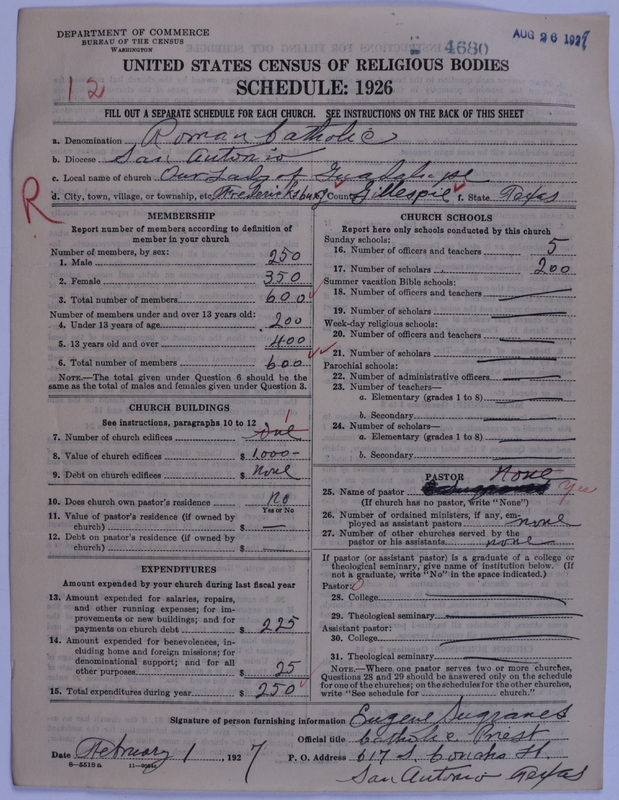 DEPARTMENT OF COMMERCE
BUREAU OF THE CENSUS
WASHINGTON
4680
AUG 26 1927
UNITED STATES CENSUS OF RELIGIOUS BODIES
SCHEDULE: 1926
12
FILL OUT A SEPARATE SCHEDULE FOR EACH CHURCH. SEE INSTRUCTIONS ON THE BACK OF THIS SHEET
a. Denomination Roman Catholic
b. Diocese San Antonio
c. Local name of church Our Lady of Guadalupe
d. City, town, village, or township, etc. Fredericksburg County Gillespie f. State Texas
R
MEMBERSHIP
Report number of members according to definition of
member in your church
Number of members, by sex:
1. Male 250
2. Female 350
3. Total number of members 600
Number of members under and over 13 years old:
4. Under 13 years of age 200
5. 13 years old and over 400
6. Total number of members 600
NOTE.—The total given under Question 6 should be the
same as the total of males and females given under Question 3.
CHURCH BUILDINGS
See instructions, paragraphs 10 to 12
7. Number of church edifices One 1
8. Value of church edifices $ 1,000-
9. Debt on church edifices $ None
10. Does church own pastor's residence No
Yes or No
11. Value of pastor's residence (if owned by
church) $ —
12. Debt on pastor's residence (if owned by
church) $ —
EXPENDITURES
Amount expended by your church during last fiscal year
13. Amount expended for salaries, repairs,
and other running expenses; for im-
provements or new buildings; and for
payments on church debt $ 225
14. Amount expended for benevolences, in-
cluding home and foreign missions; for
denominational support; and for all
other purposes $ 25
15. Total expenditures during year $ 250
CHURCH SCHOOLS
Report here only schools conducted by this church
Sunday schools:
16. Number of officers and teachers 5
17. Number of scholars 200
Summer vacation Bible schools:
18. Number of officers and teachers
19. Number of scholars
Week-day religious schools:
20. Number of officers and teachers
21. Number of scholars
Parochial schools:
22. Number of administrative officers
23. Number of teachers—
a. Elementary (grades 1 to 8)
b. Secondary
24. Number of scholars—
a. Elementary (grades 1 to 8)
b. Secondary
PASTOR None
25. Name of pastor yes
(If church has no pastor, write "None")
26. Number of ordained ministers, if any, em-
ployed as assistant pastors none
27. Number of other churches served by the
pastor or his assistants none
If pastor (or assistant pastor) is a graduate of a college or
theological seminary, give name of institution below. (If
not a graduate, write "No" in the space indicated.)
Pastor:
28. College
29. Theological seminary
Assistant pastor:
30. College
31. Theological seminary
NOTE.—Where one pastor serves two or more churches,
Questions 28 and 29 should be answered only on the schedule
for one of the churches; on the schedules for the other churches,
write "See schedule for church."
Signature of person furnishing information Eugene Sugranes
Official title Catholic Priest
Date February 1, 1927 P. O. Address 617 S. Concho St.
8—5518a
San Antonio Texas